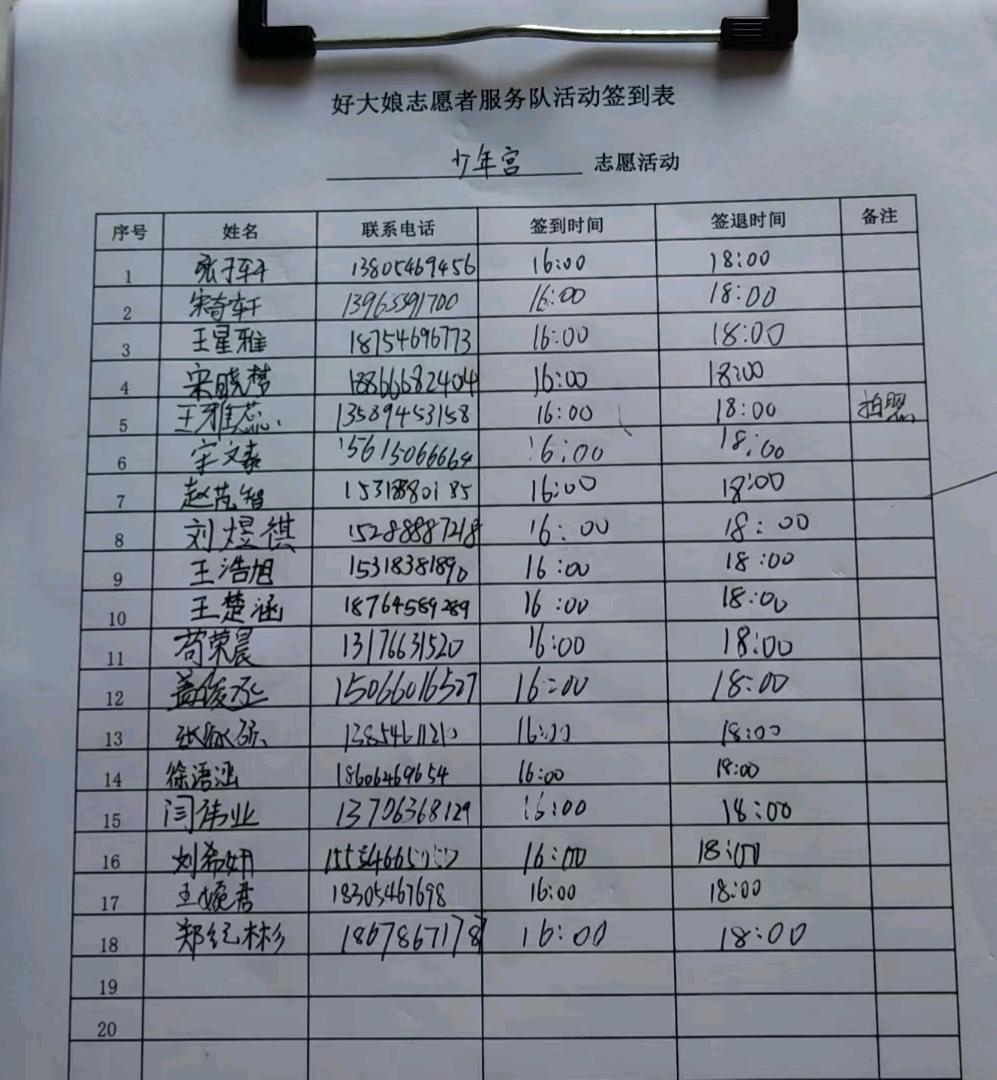 好大娘志愿者服务队活动签到表
少年宫 志愿活动
序号 姓名 联系电话 签到时间 签退时间 备注
1 张子轩 13805469456 16:00 18:00
2 宋奇轩 13965391700 16:00 18:00
3 王星雅 18754696773 16:00 18:00
4 宋晓梦 18866682404 16:00 18:00
5 王雅蕊 13589453158 16:00 18:00 拍照
6 宋文泰 15615066664 16:00 18:00
7 赵芃智 15318880185 16:00 18:00
8 刘煜祺 15288887218 16:00 18:00
9 王浩旭 15318381890 16:00 18:00
10 王楚涵 18764589289 16:00 18:00
11 苟荣晨 13176631520 16:00 18:00
12 盖俊丞 15066016527 16:00 18:00
13 16:00 18:00
14 徐语涵 18606469654 16:00 18:00
15 闫伟业 13706368129 16:00 18:00
16 刘希妍 16:00 18:00
17 王婉君 18305467698 16:00 18:00
18 郑纪彬 18678671787 16:00 18:00
19
20